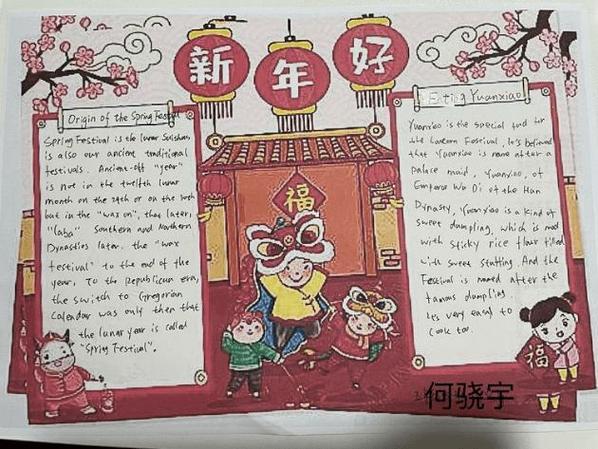 新年好
Origin of the Spring Festival
Spring Festival is the lunar
is also our ancient traditional
festivals. Ancient-off "year"
is not in the twelfth lunar
month on the 29th or on the
but in the "wax on", that later,
"laba" Southern and Northern
Dynasties later. the "wax
festival" to the end of the
year. To the Republican era,
the switch to Gregorian
Calendar was only then that
the lunar year is called
"Spring Festival".
Eating Yuanxiao
Yuanxiao is the special food for
the Lantern Festival. It's believed
that Yuanxiao is name after a
palace maid, Yuanxiao, of
Emperor Wu Di of the Han
Dynasty, Yuanxiao is a kind of
sweet dumpling, which is mad
with sticky rice flour filled
with sweet stuffing. And the
Festival is named after the
famous dumpling
It's very easy to
cook too.
福
福
何骁宇